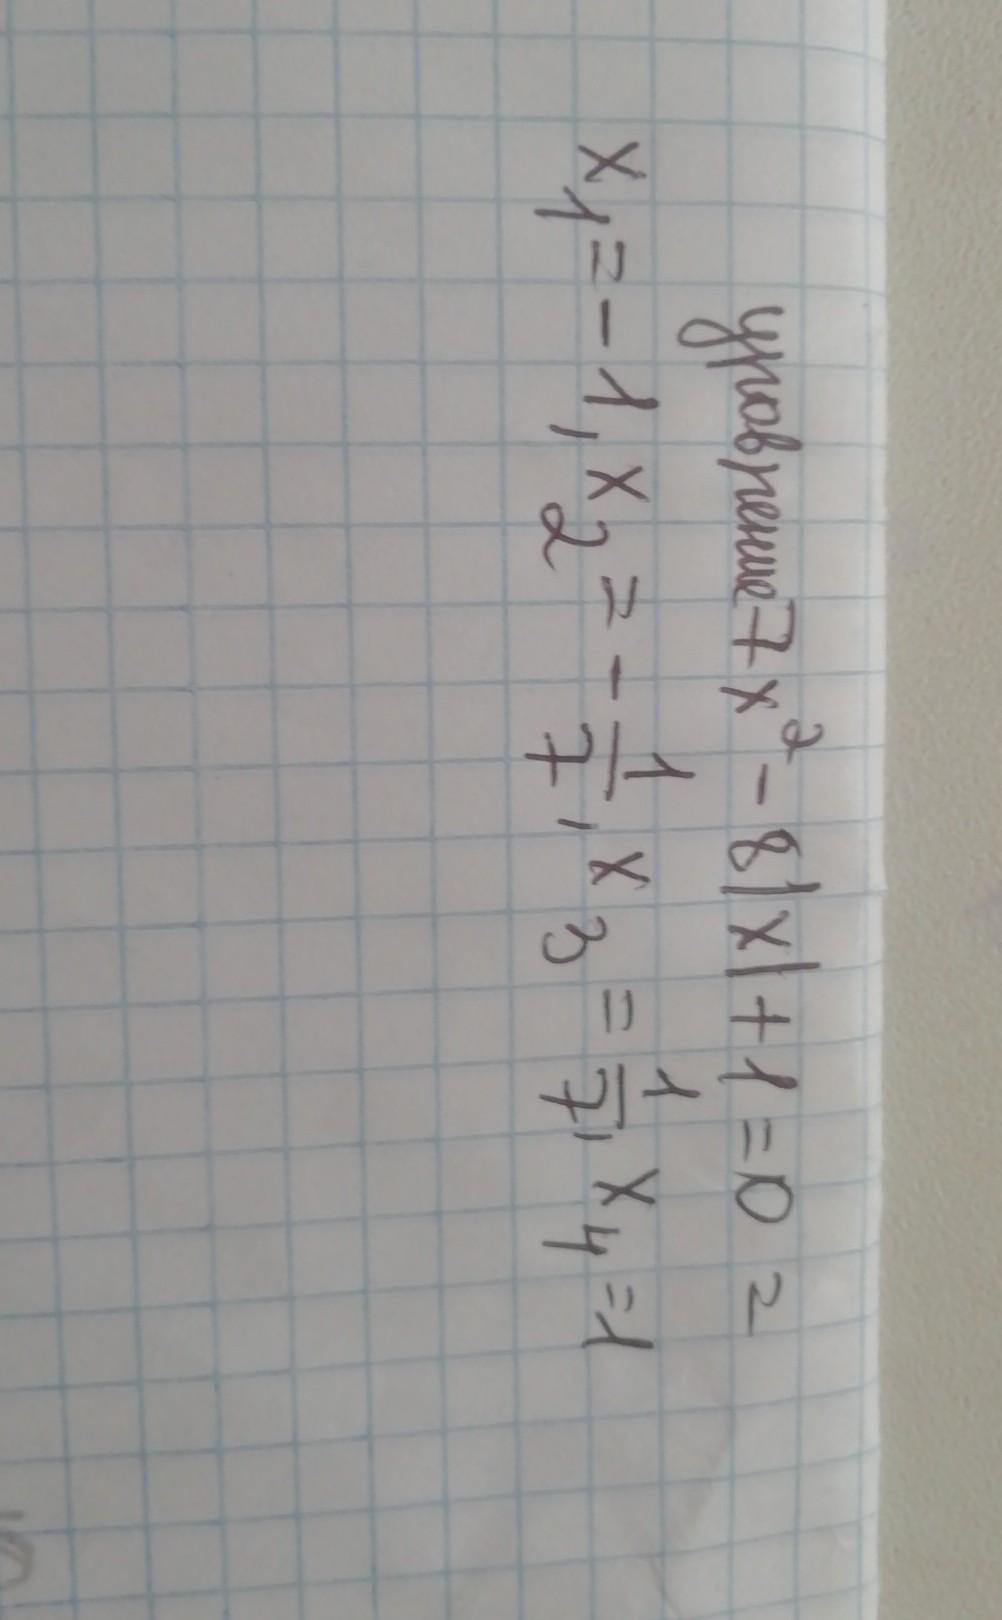 уравнение 7x² - 8|x| + 1 = 0 =
x₁ = - 1, x₂ = - 1/7, x₃ = 1/7, x₄ = 1